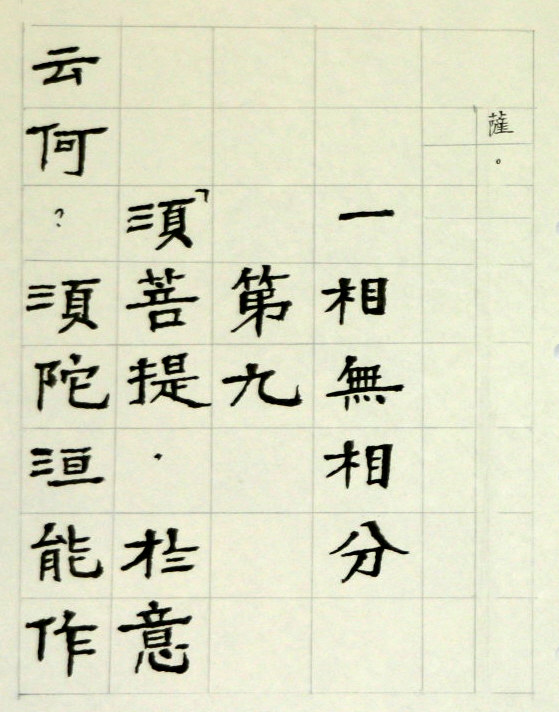 薩。
一相無相分
第九
「須菩提．於意
云何？須陀洹能作